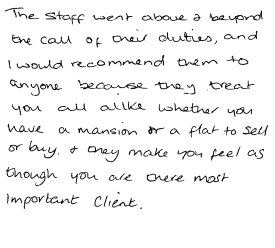 The staff went above & beyond
the call of their duties, and
I would recommend them to
anyone because they treat
you all alike whether you
have a mansion or a flat to sell
or buy. & they make you feel as
though you are there most
important client.